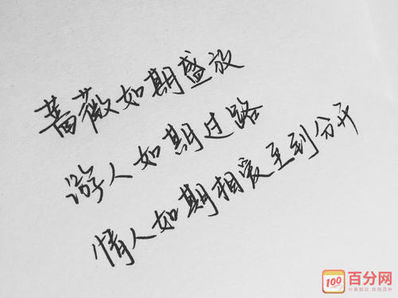 蔷薇如期盛放
游人如期过路
情人如期相爱至到分开
100
百分网